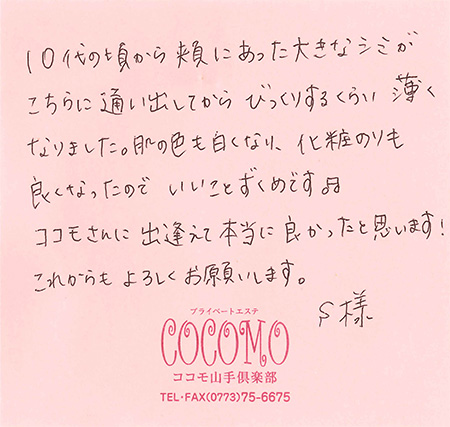 10代の頃から頬にあった大きなシミが
こちらに通い出してから びっくりするくらい 薄く
なりました。肌の色も白くなり、化粧のりも
良くなったので いいことずくめです♫
ココモさんに出逢えて本当に良かったと思います!
これからもよろしくお願いします。
S様
プライベートエステ
COCOMO
ココモ山手倶楽部
TEL・FAX(0773)75-6675